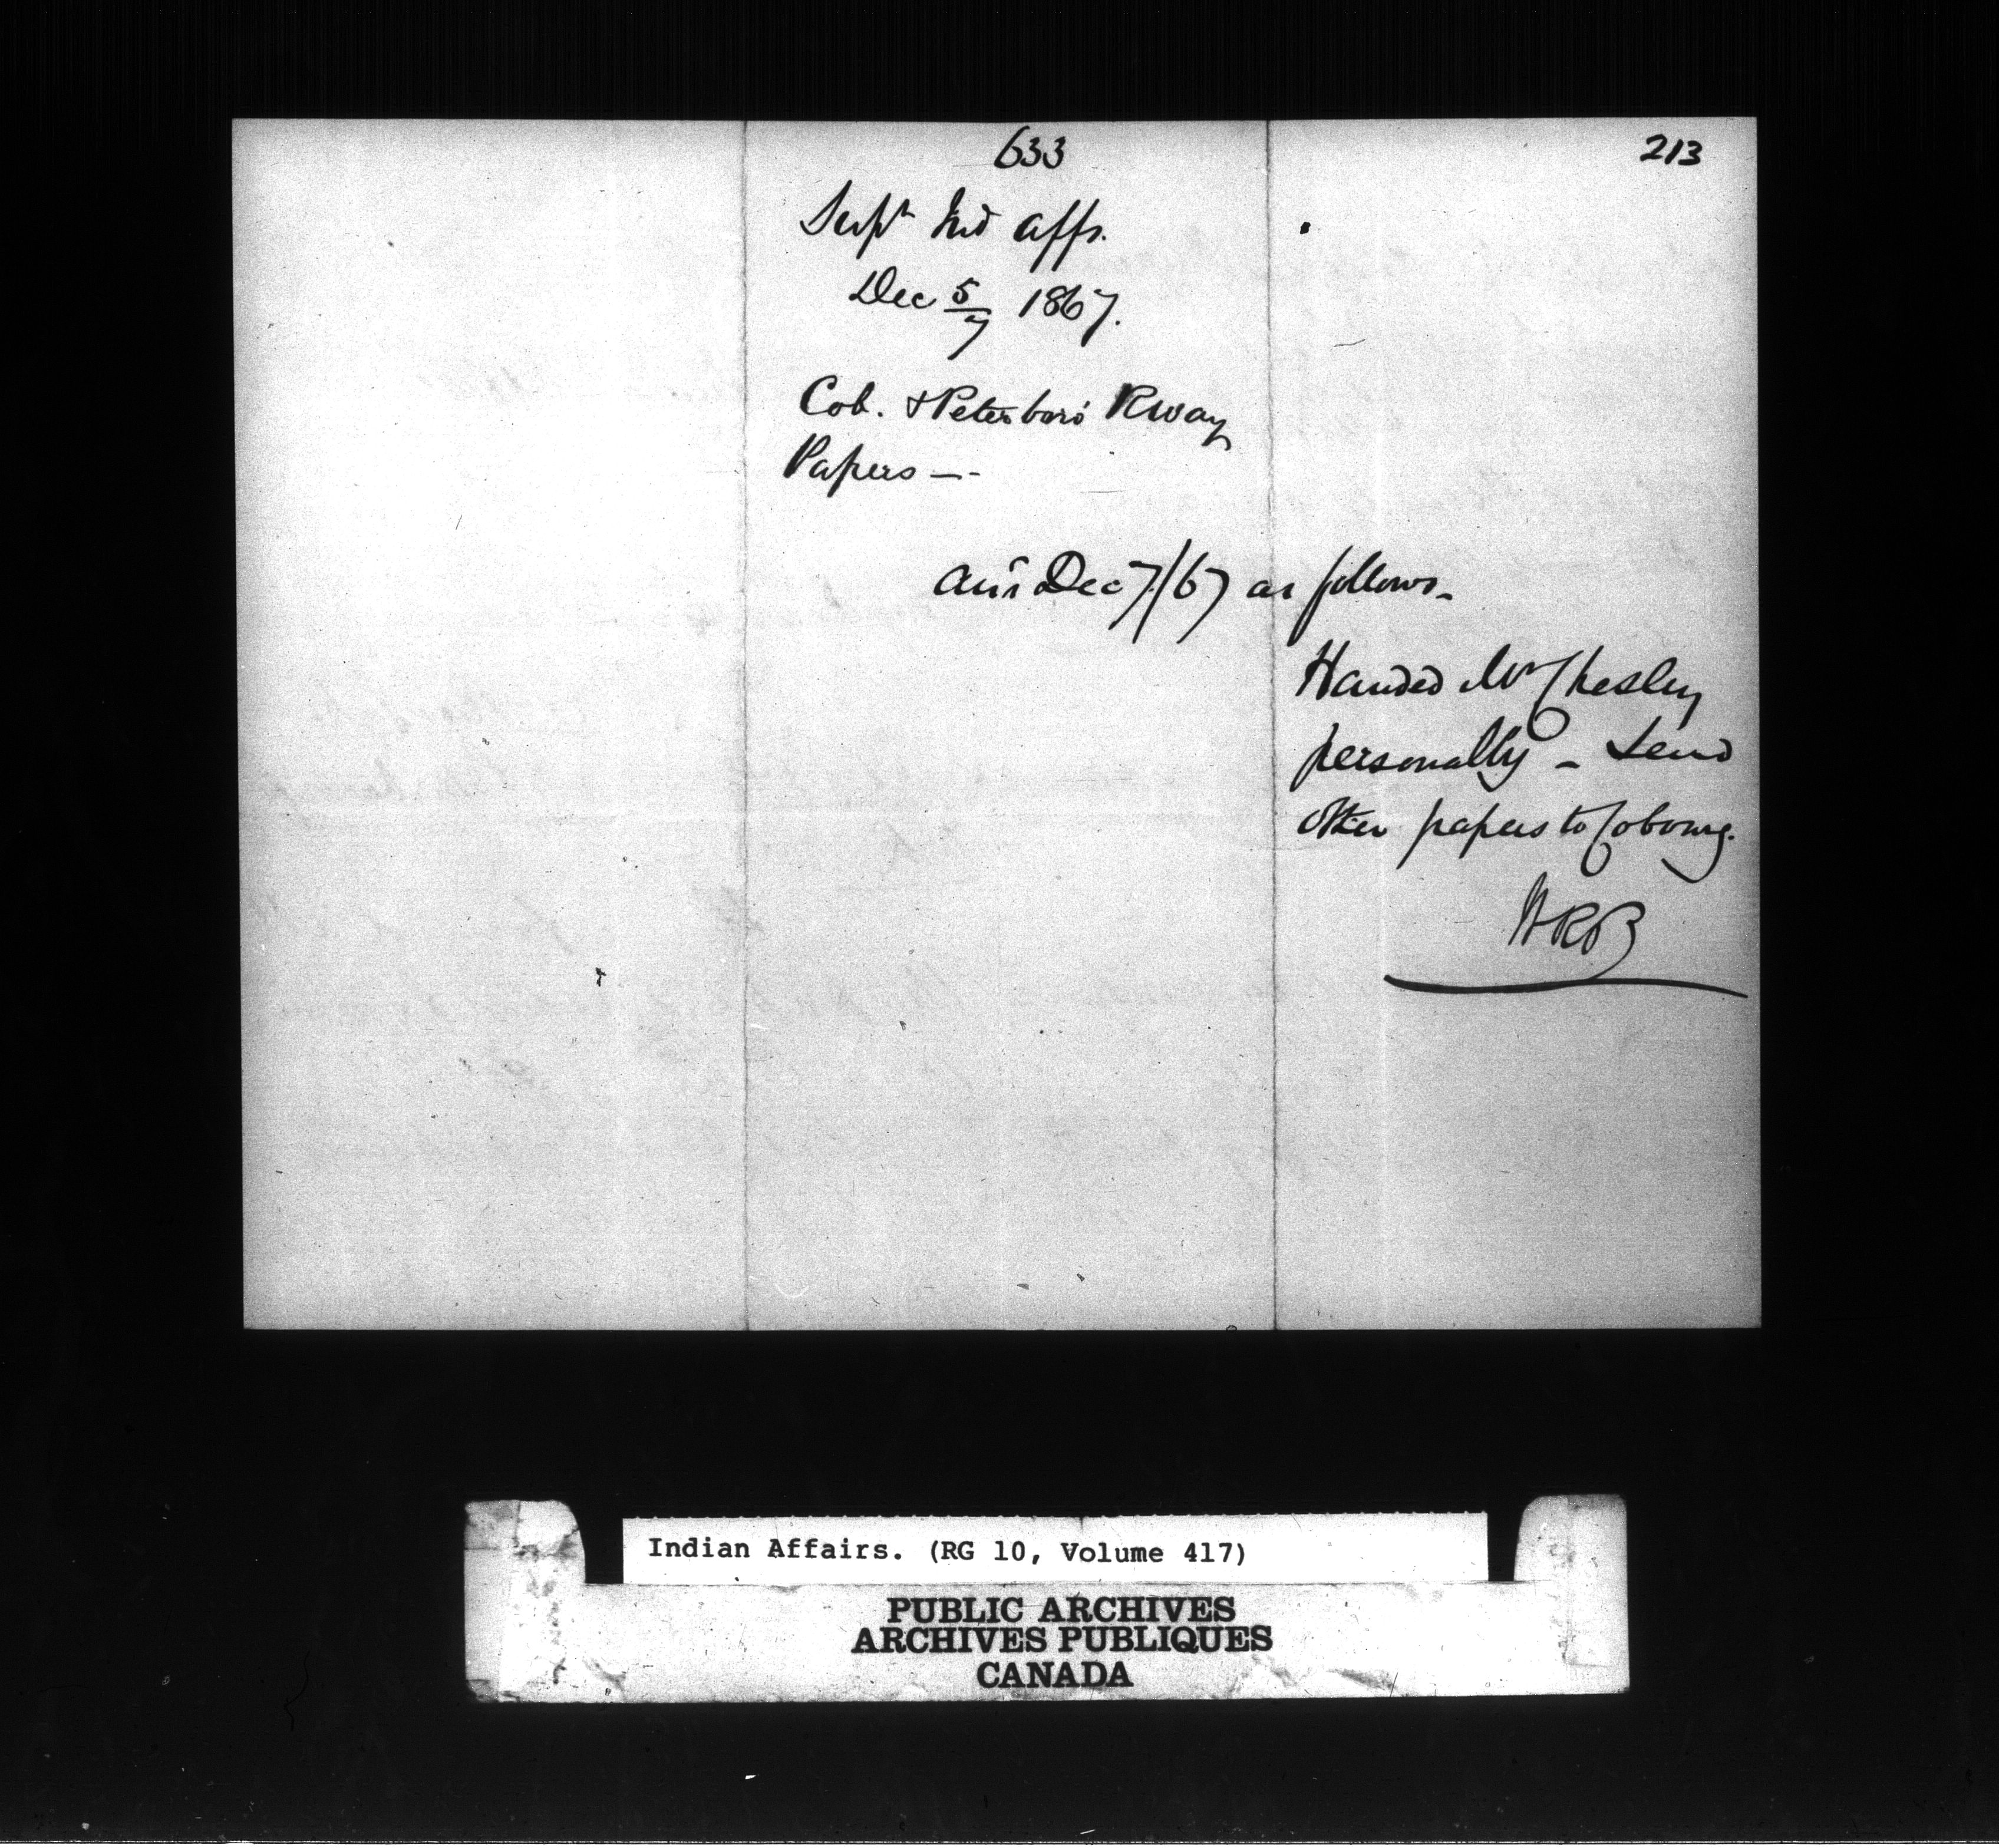 633
213
Supt Ind affs.
Dec 5/7 1867.
Cob. & Peterboro' Rway
Papers —
ans Dec 7/67 as follows -
Handed Mr Chesley
personally - Send
other papers to Cobourg.
Indian Affairs. (RG 10, Volume 417)
PUBLIC ARCHIVES
ARCHIVES PUBLIQUES
CANADA